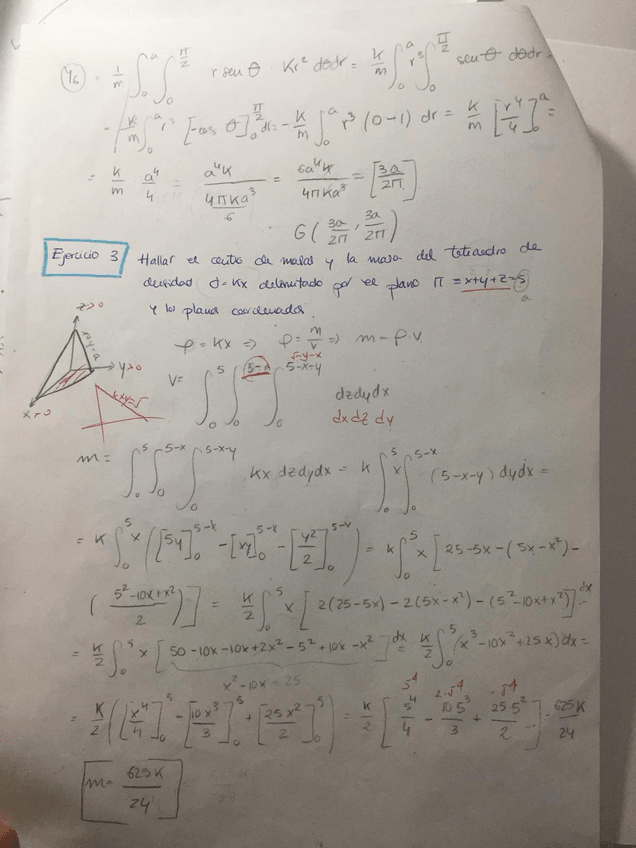 y_G = 1/m ∫₀^a ∫₀^(π/2) r sen θ · Kr² dθdr = k/m ∫₀^a r³ ∫₀^(π/2) sen θ dθdr =
= k/m ∫₀^a r³ [-cos θ]₀^(π/2) dr = - k/m ∫₀^a r³ (0-1) dr = k/m [r⁴/4]₀^a =
= k/m a⁴/4 = a⁴k / (4πka³/6) = 6a⁴k / 4πka³ = [3a/2π]
G (3a/2π, 3a/2π)
Ejercicio 3 Hallar el centro de masas y la masa del tetraedro de
densidad d=Kx delimitado por el plano π = x+y+z=5
a
y los planos coordenados.
z>0
x+y=a
y>0
x>0
x+y=5
ρ = kx ⇒ ρ = m/v ⇒ m = ρ·v.
5-y-x
V= ∫₀^5 ∫₀^(5-x) ∫₀^(5-x-y) dzdydx
dx dz dy
m = ∫₀^5 ∫₀^(5-x) ∫₀^(5-x-y) kx dzdydx = k ∫₀^5 x ∫₀^(5-x) (5-x-y) dydx =
= k ∫₀^5 x ([5y]₀^(5-x) - [xy]₀^(5-x) - [y²/2]₀^(5-x)) = k ∫₀^5 x [25-5x-(5x-x²)-
((5²-10x+x²)/2)] = k/2 ∫₀^5 x [2(25-5x)-2(5x-x²)-(5²-10x+x²)] dx
= k/2 ∫₀^5 x [50-10x-10x+2x²-5²+10x-x²] dx = k/2 ∫₀^5 (x³-10x²+25x) dx =
x²-10x+25
5⁴ 2·5⁴ 5⁴
= k/2 ([x⁴/4]₀^5 - [10x³/3]₀^5 + [25x²/2]₀^5) = k/2 [5⁴/4 - 10·5³/3 + 25·5²/2] = 625k/24
m = 625k/24